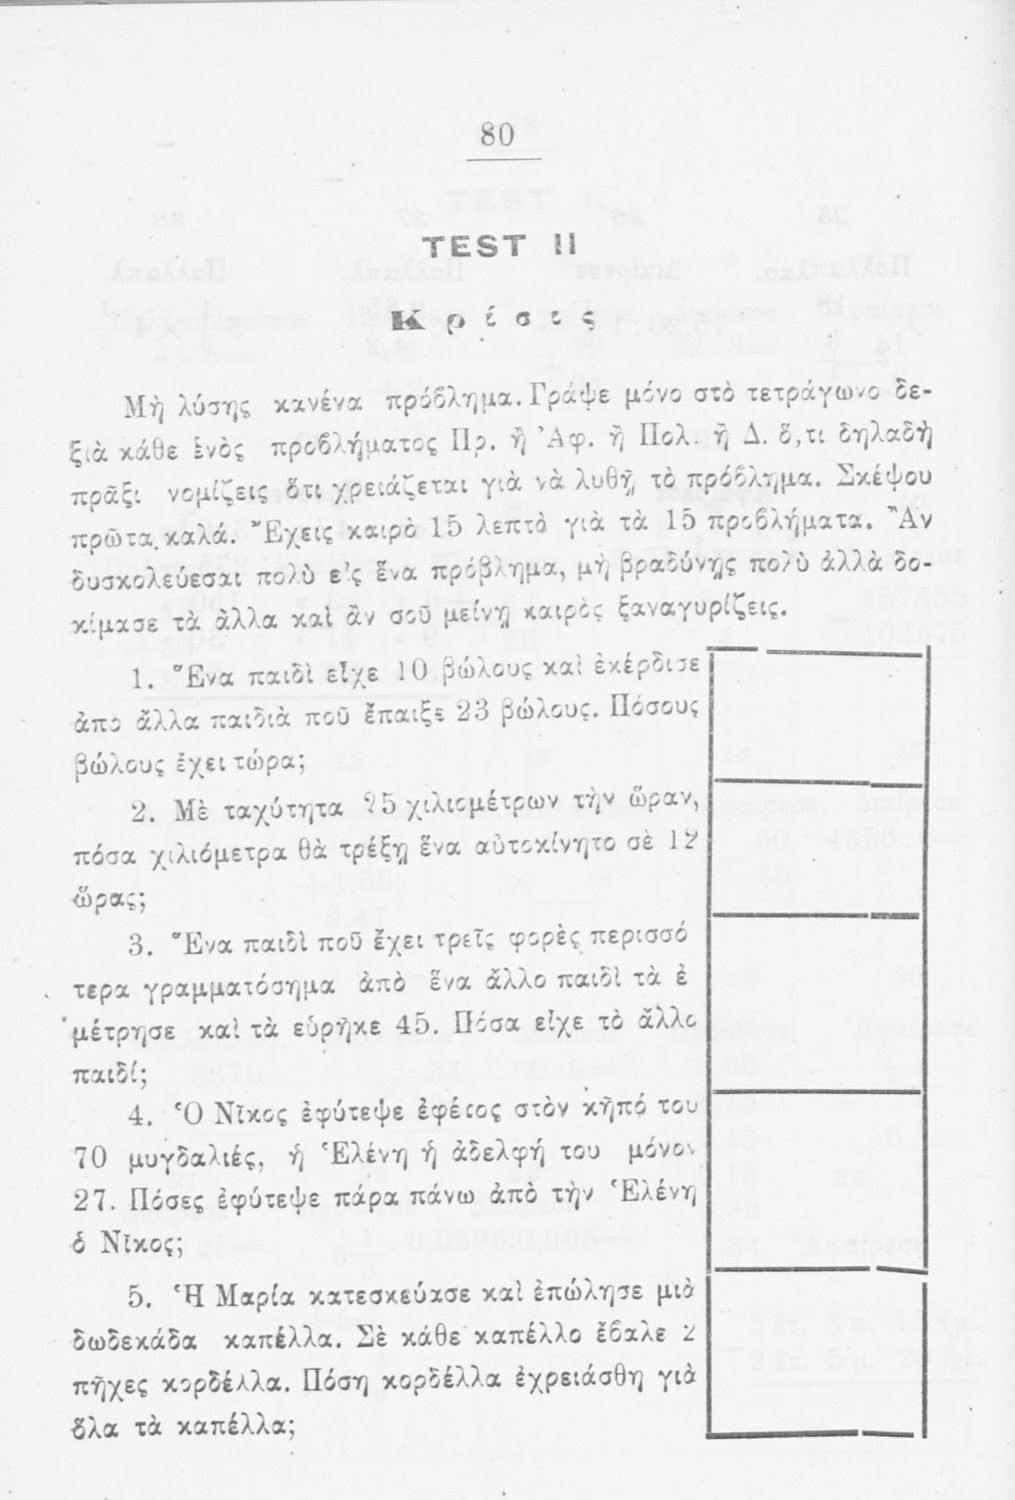 80
TEST II
Κρίσεις
Μὴ λύσῃς κανένα πρόβλημα. Γράψε μόνο στὸ τετράγωνο δε-
ξιὰ κάθε ἑνὸς προβλήματος Πρ. ἢ Ἀφ. ἢ Πολ. ἢ Δ. ὅ,τι δηλαδὴ
πρᾶξι νομίζεις ὅτι χρειάζεται γιὰ νὰ λυθῇ τὸ πρόβλημα. Σκέψου
πρῶτα καλά. Ἔχεις καιρὸ 15 λεπτὰ γιὰ τὰ 15 προβλήματα. Ἂν
δυσκολεύεσαι πολὺ εἰς ἕνα πρόβλημα, μὴ βραδύνῃς πολὺ ἀλλὰ δο-
κίμασε τὰ ἄλλα καὶ ἂν σοῦ μείνῃ καιρὸς ξαναγυρίζεις.
1. Ἕνα παιδὶ εἶχε 10 βώλους καὶ ἐκέρδισε
ἀπὸ ἄλλα παιδιὰ ποῦ ἔπαιξε 23 βώλους. Πόσους
βώλους ἔχει τώρα;
2. Μὲ ταχύτητα 25 χιλιομέτρων τὴν ὥραν,
πόσα χιλιόμετρα θὰ τρέξῃ ἕνα αὐτοκίνητο σὲ 12
ὥρας;
3. Ἕνα παιδὶ ποῦ ἔχει τρεῖς φορὲς περισσό
τερα γραμματόσημα ἀπὸ ἕνα ἄλλο παιδὶ τὰ ἐ
μέτρησε καὶ τὰ εὑρῆκε 45. Πόσα εἶχε τὸ ἄλλο
παιδί;
4. Ὁ Νῖκος ἐφύτεψε ἐφέτος στὸν κῆπό του
70 μυγδαλιές, ἡ Ἑλένη ἡ ἀδελφή του μόνον
27. Πόσες ἐφύτεψε πάρα πάνω ἀπὸ τὴν Ἑλένη
ὁ Νῖκος;
5. Ἡ Μαρία κατεσκεύασε καὶ ἐπώλησε μιὰ
δωδεκάδα καπέλλα. Σὲ κάθε καπέλλο ἔβαλε 2
πῆχες κορδέλλα. Πόση κορδέλλα ἐχρειάσθη γιὰ
ὅλα τὰ καπέλλα;